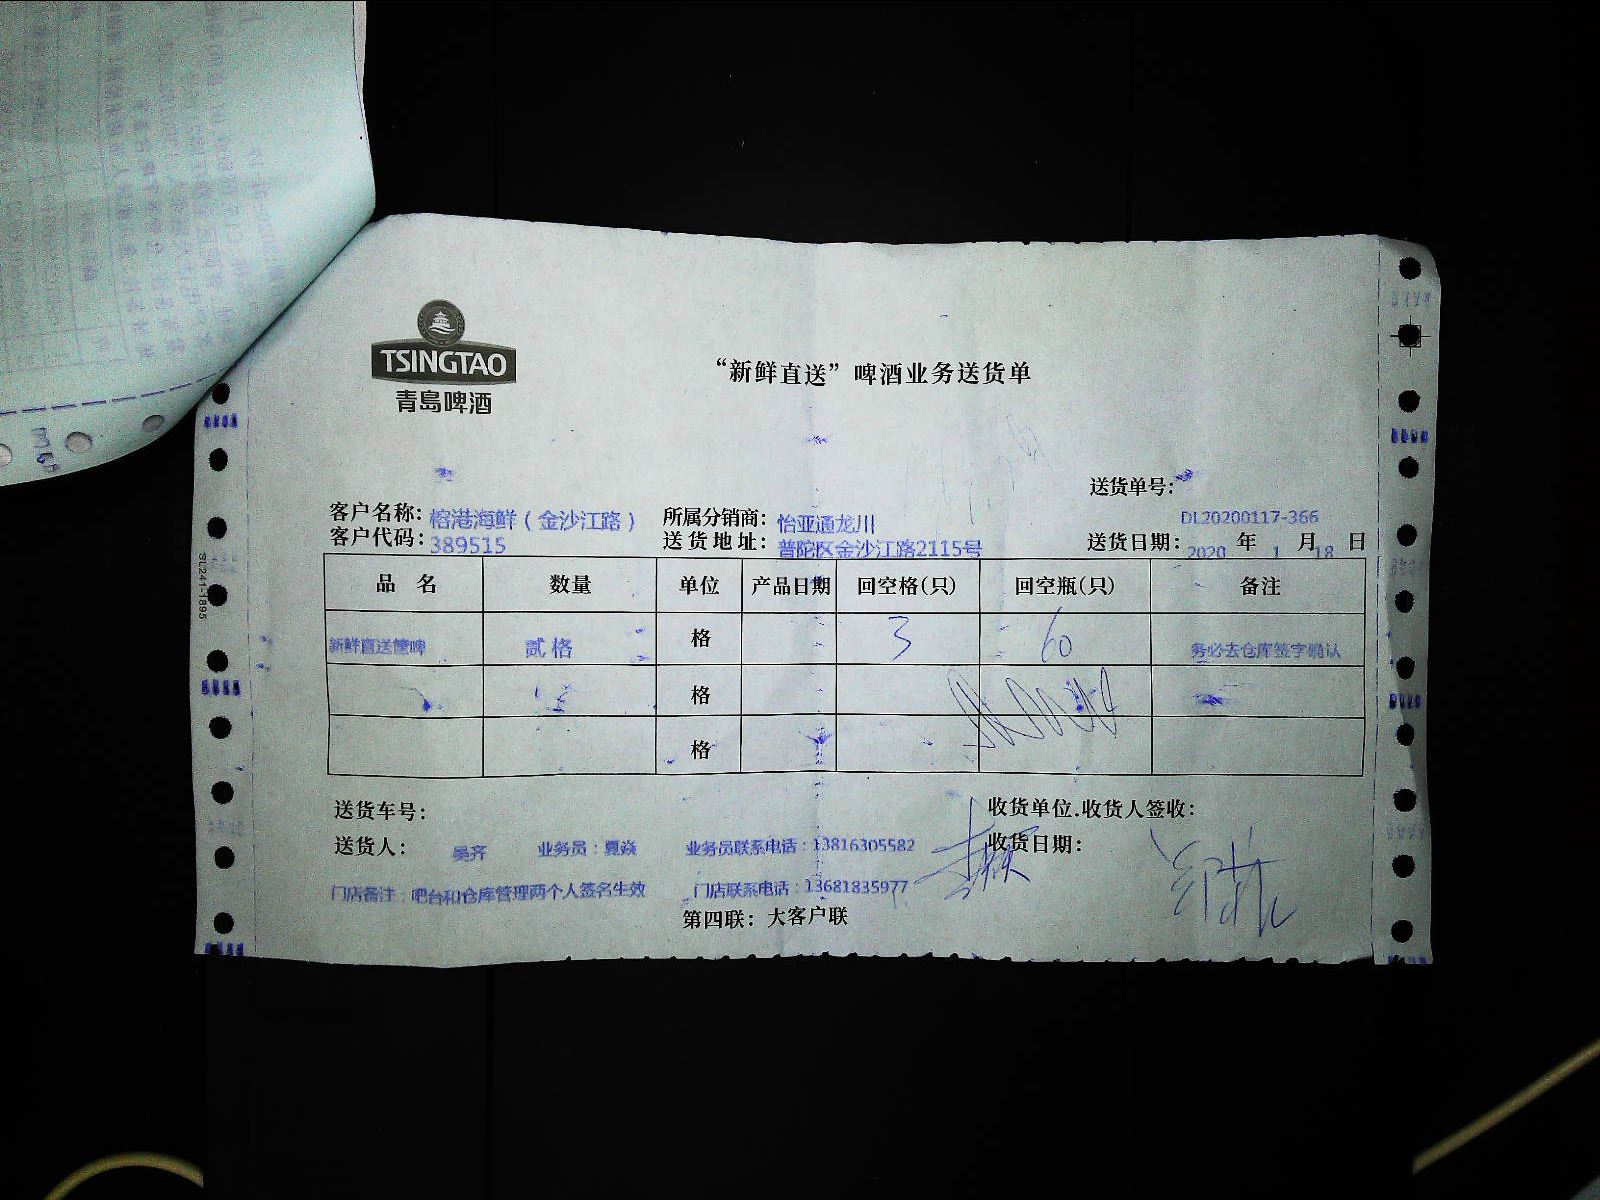 TSINGTAO
青島啤酒
“新鲜直送”啤酒业务送货单
送货单号:
DL20200117-366
客户名称: 榕港海鲜(金沙江路) 所属分销商: 怡亚通龙川
客户代码: 389515 送货地址: 普陀区金沙江路2115号 送货日期: 2020 年 1 月 18 日
品 名 数量 单位 产品日期 回空格(只) 回空瓶(只) 备注
新鲜直送 贰格 格 3 60 务必去仓库签字确认
格
格
送货车号: 收货单位.收货人签收:
送货人: 吴齐 业务员:夏焱 业务员联系电话:13816305582 收货日期:
门店备注:吧台和仓库管理两个人签名生效 门店联系电话:13681835977
第四联: 大客户联
SL241-1895